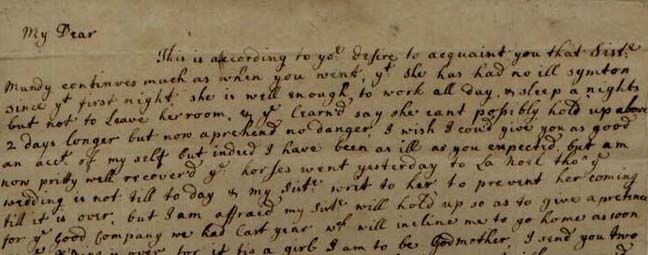 My Dear
This is according to yor desire to acquaint you that Sistr
Mundy continues much as when you went, yt she has had no ill symton
since yt first night, she is well enough to work all day, & sleep a nights
but not to Leave her room, & ye Learn'd say she cant possibly hold up above
2 days longer but now aprehend no danger, I wish I cou'd give you as good
an acct. of my self but indeed I have been as ill as you expected, but am
now pritty well recover'd yr horses went yesterday to La Noel tho' ye
wedding is not till to day & my Sistr writ to her to prevent her coming
till it is over, but I am affraid my Sistr will hold up so as to give a pretence
for ye Good Company we had Last year wch will incline me to go home as soon
is over, for if tis a girl I am to be Godmother, I send you two